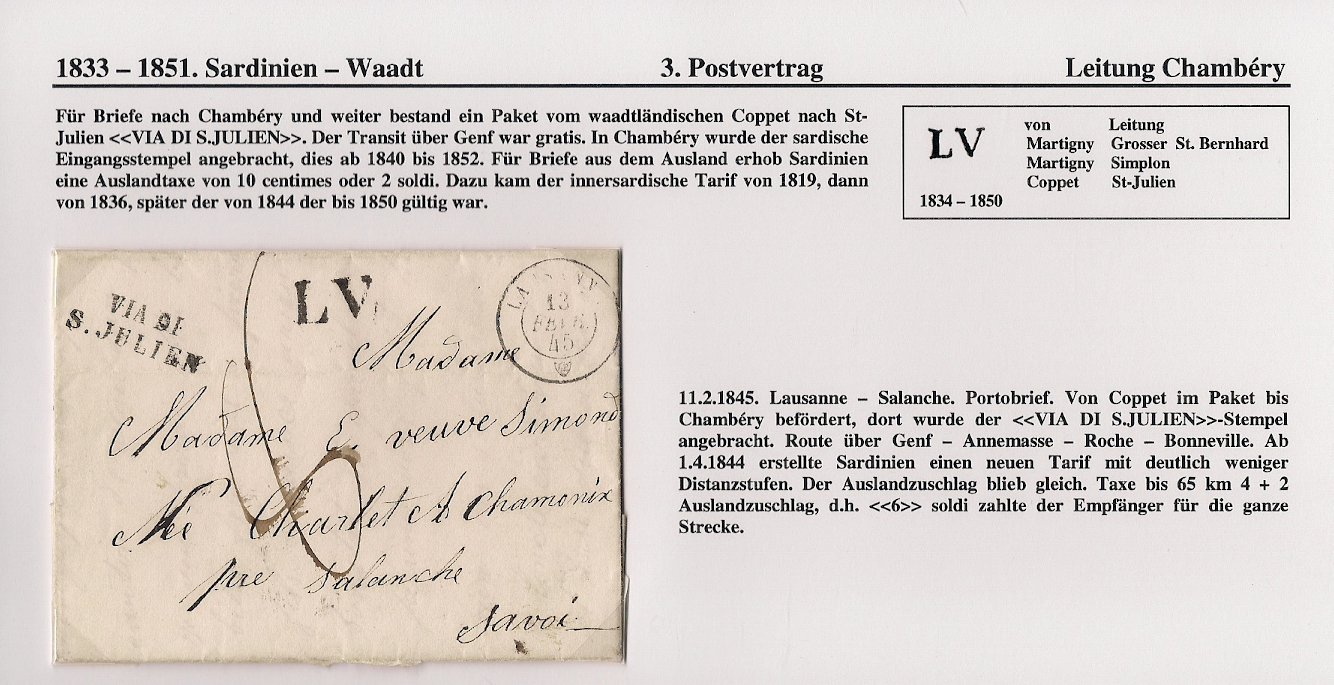 1833 – 1851. Sardinien – Waadt 3. Postvertrag Leitung Chambéry
Für Briefe nach Chambéry und weiter bestand ein Paket vom waadtländischen Coppet nach St-
Julien <<VIA DI S.JULIEN>>. Der Transit über Genf war gratis. In Chambéry wurde der sardische
Eingangsstempel angebracht, dies ab 1840 bis 1852. Für Briefe aus dem Ausland erhob Sardinien
eine Auslandtaxe von 10 centimes oder 2 soldi. Dazu kam der innersardische Tarif von 1819, dann
von 1836, später der von 1844 der bis 1850 gültig war.
von Leitung
LV Martigny Grosser St. Bernhard
Martigny Simplon
Coppet St-Julien
1834 – 1850
VIA DI
S. JULIEN
LV
13
45
Madame
Madame E. veuve Simond
Née Charlet A Chamonix
pre Salanche
Savoi
6
11.2.1845. Lausanne – Salanche. Portobrief. Von Coppet im Paket bis
Chambéry befördert, dort wurde der <<VIA DI S.JULIEN>>-Stempel
angebracht. Route über Genf – Annemasse – Roche – Bonneville. Ab
1.4.1844 erstellte Sardinien einen neuen Tarif mit deutlich weniger
Distanzstufen. Der Auslandzuschlag blieb gleich. Taxe bis 65 km 4 + 2
Auslandzuschlag, d.h. <<6>> soldi zahlte der Empfänger für die ganze
Strecke.